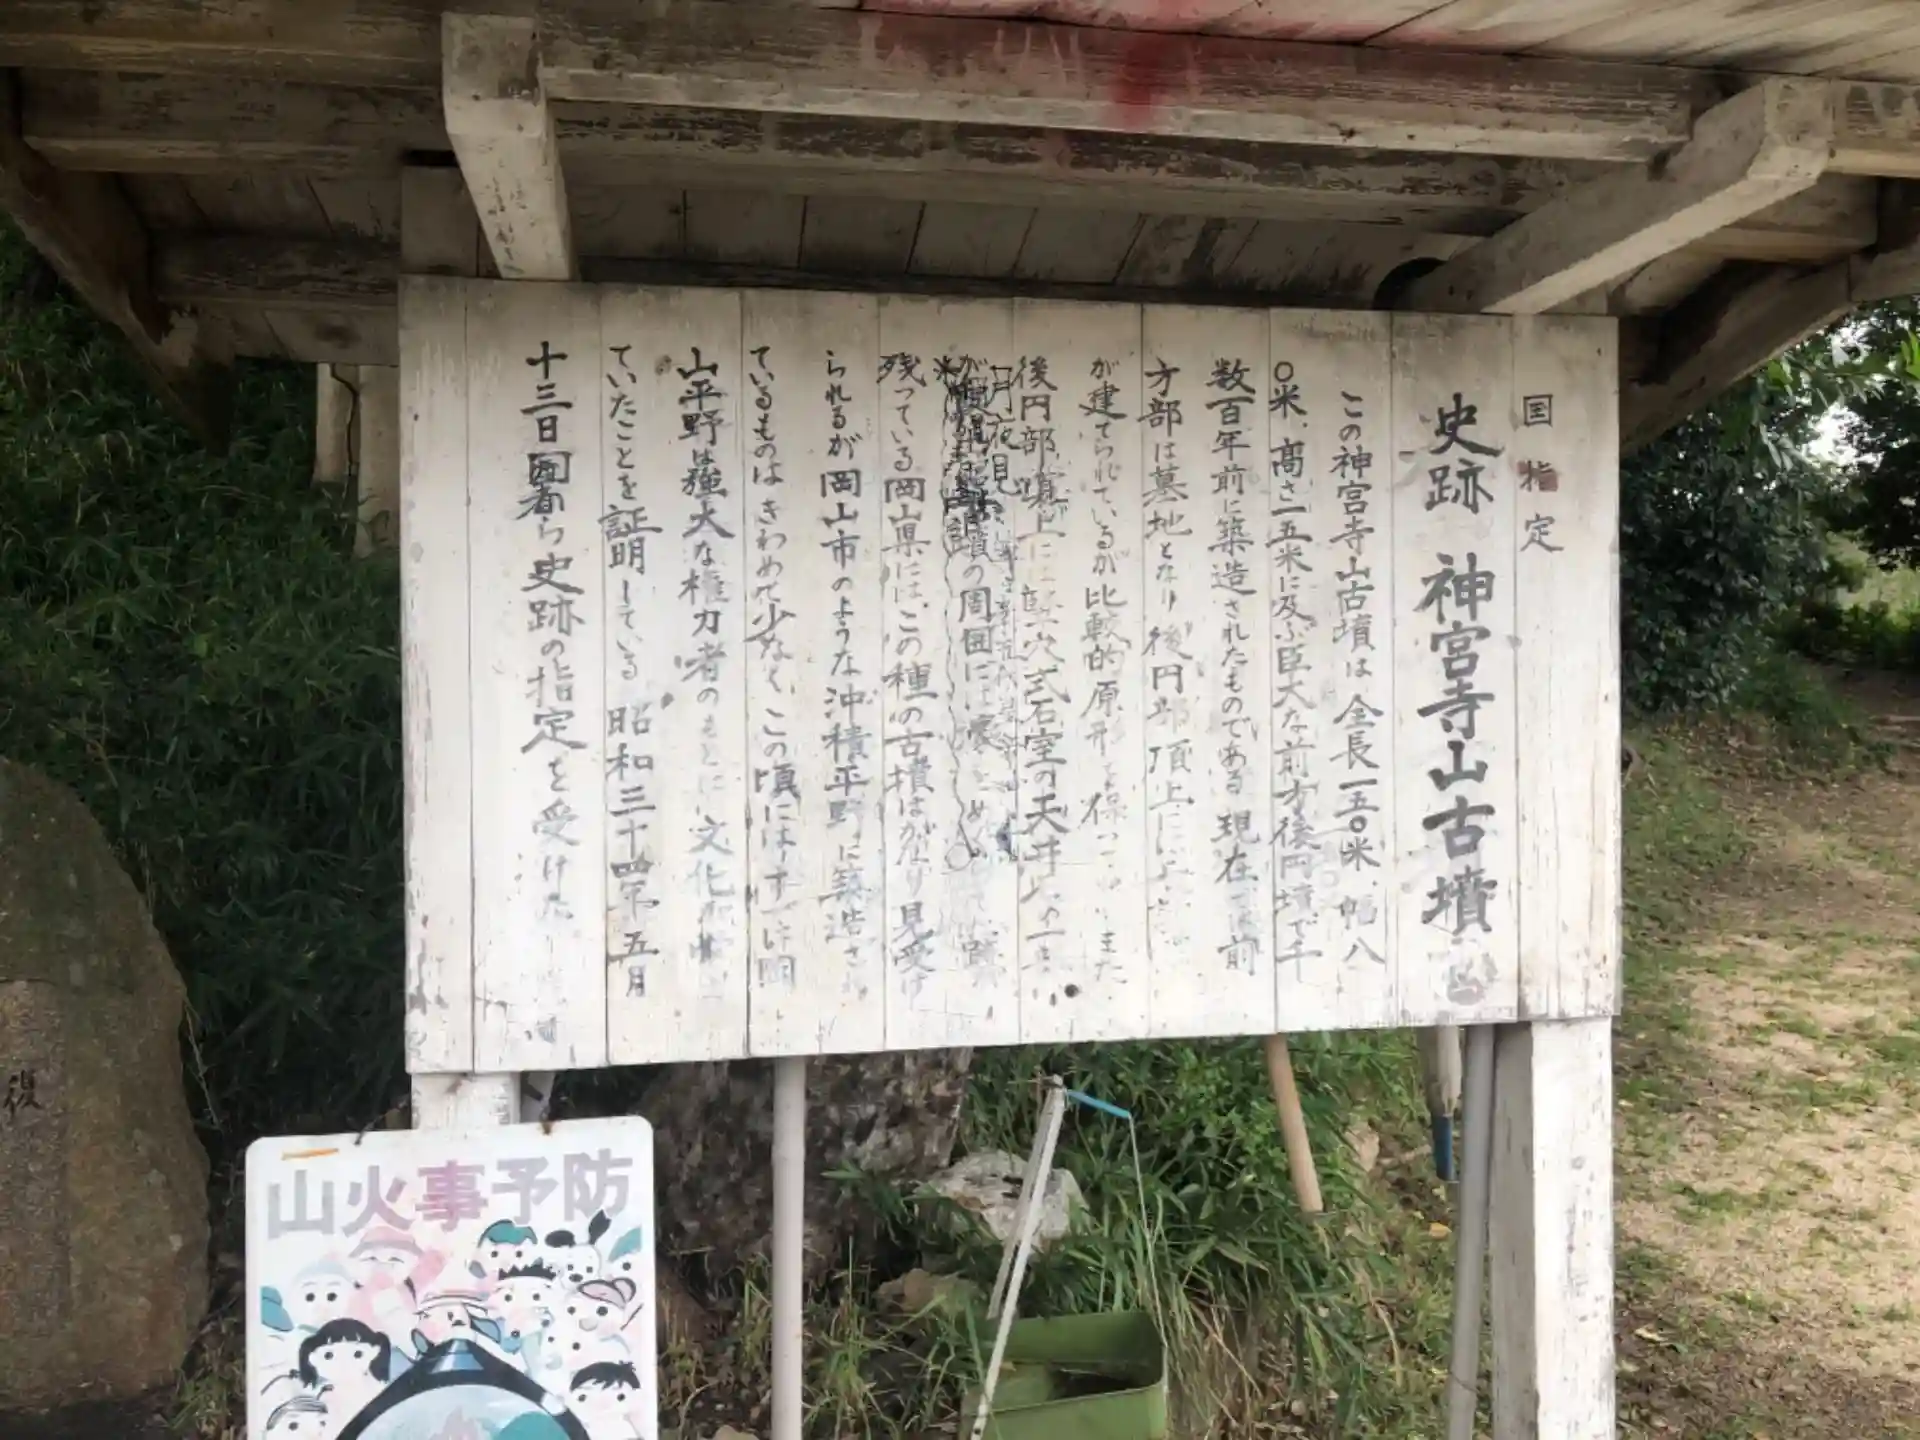 国指定
史跡 神宮寺山古墳
この神宮寺山古墳は全長一五〇米、幅八
〇米、高さ一五米に及ぶ臣大な前方後円墳で千
数百年前に築造されたものである 現在では前
方部は墓地となり後円部頂上には
が建てられているが比較的原形を保って また
後円部墳上には竪穴式石室の天井
の周囲には濠
残っている岡山県には、この種の古墳はかなり見受け
られるが岡山市のような沖積平野に築造され
ているものはきわめて少なく、この頃にはすでに岡
山平野は強大な権力者のもとに文化が
ていたことを証明している 昭和三十四年五月
十三日国から史跡の指定を受けた
山火事予防
復